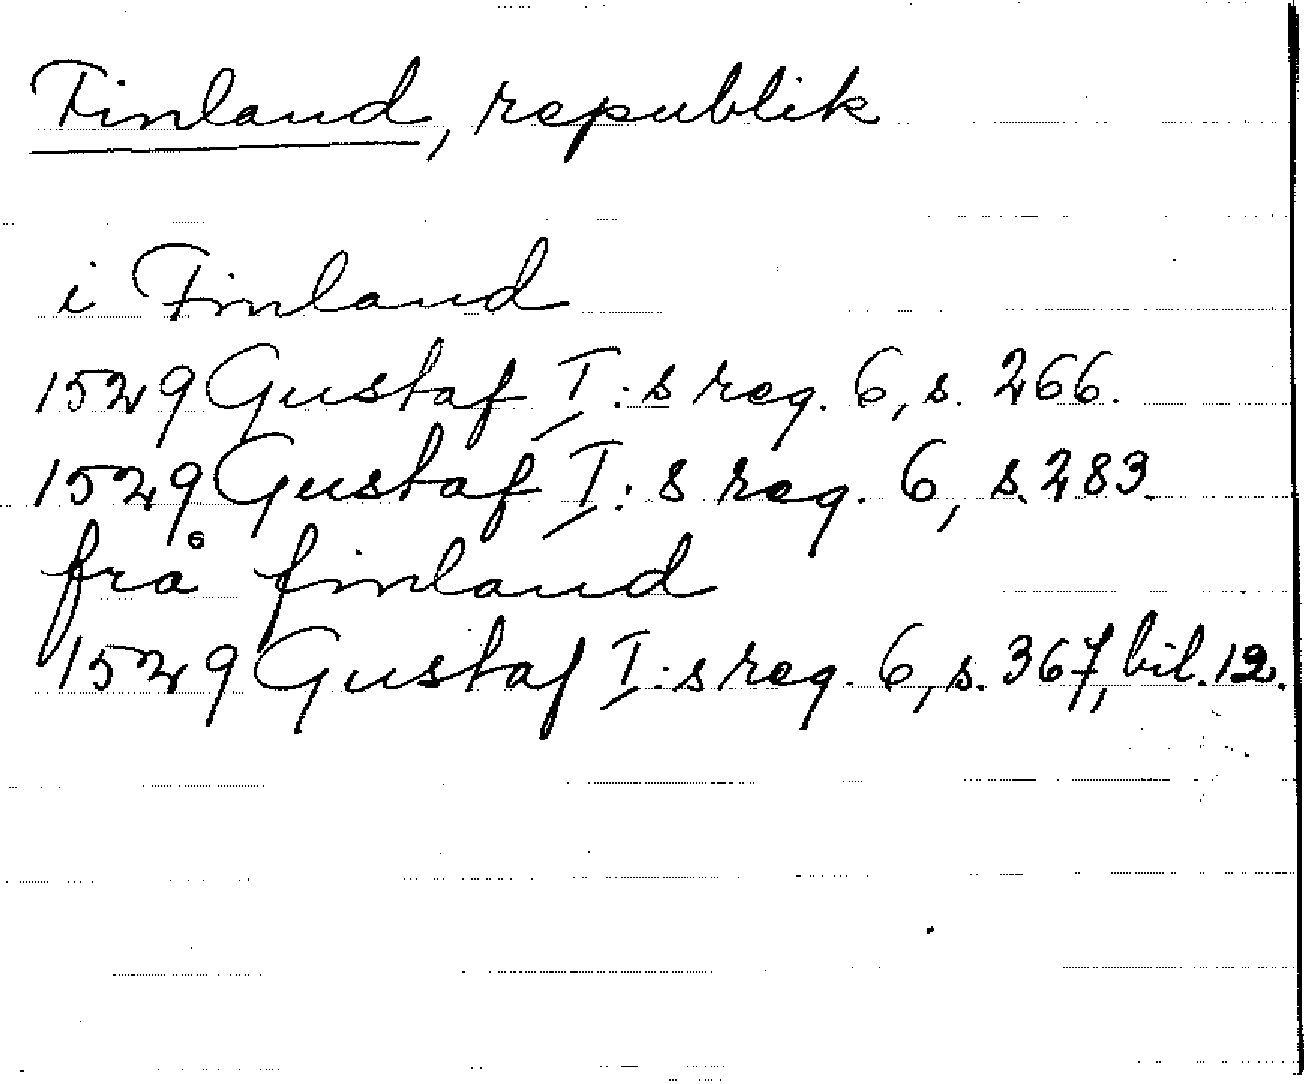 Finland, republik
i Finland
1529 Gustaf I:s reg. 6, s. 266.
1529 Gustaf I:s reg. 6, s. 283.
frå finland
1529 Gustaf I:s reg. 6, s. 367, bil. 12.